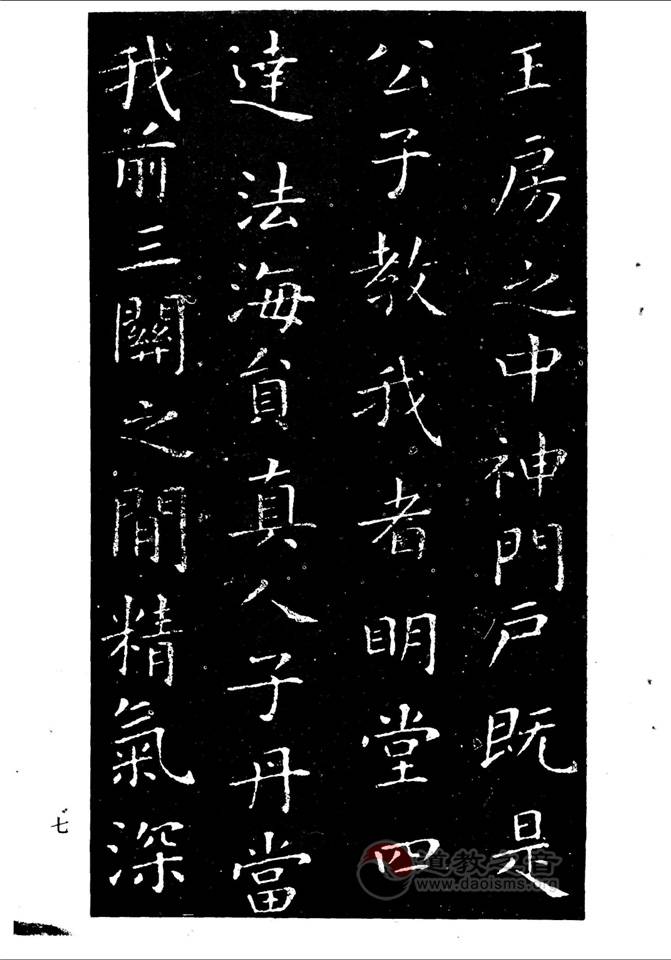 王房之中神門戶既是
公子教我者明堂四
達法海貟真人子丹當
我前三關之間精氣深
七
道教之音
www.daoisms.org